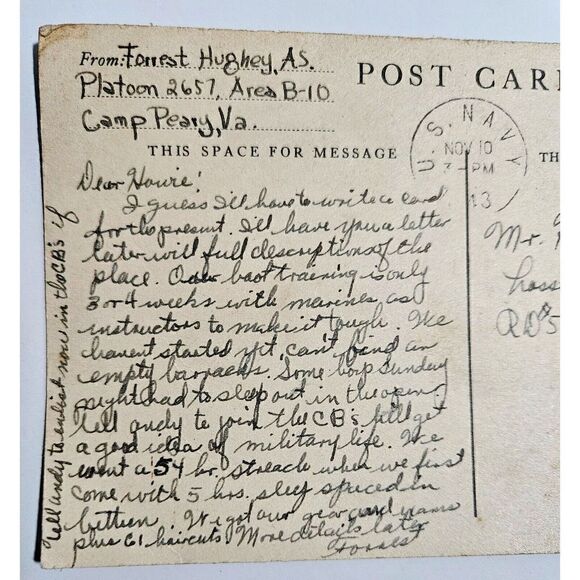 From: Forrest Hughey, AS.
Platoon 2657, Area B-10
Camp Peary, Va.
POST CAR
THIS SPACE FOR MESSAGE
U.S. NAVY
NOV 10
PM
43
TH
Dear Howie!
I guess I'll have to write a card
for the present. I'll have you a letter
later with full descriptions of the
place. Our boot training is only
3 or 4 weeks with marines, as
instructors to make it tough. We
havent started yet, can't find an
empty barracks. Some boys Sunday
night had to sleep out in the open
Tell andy to join the CB's he'll get
a good idea of military life. We
went a 54 hr. streach when we first
come with 5 hrs. sleep spaced in
between. We got our gear and
plus GI haircuts More details later
Forrest
Tell andy to enlist now in the CB's if
Mr.
RD 5